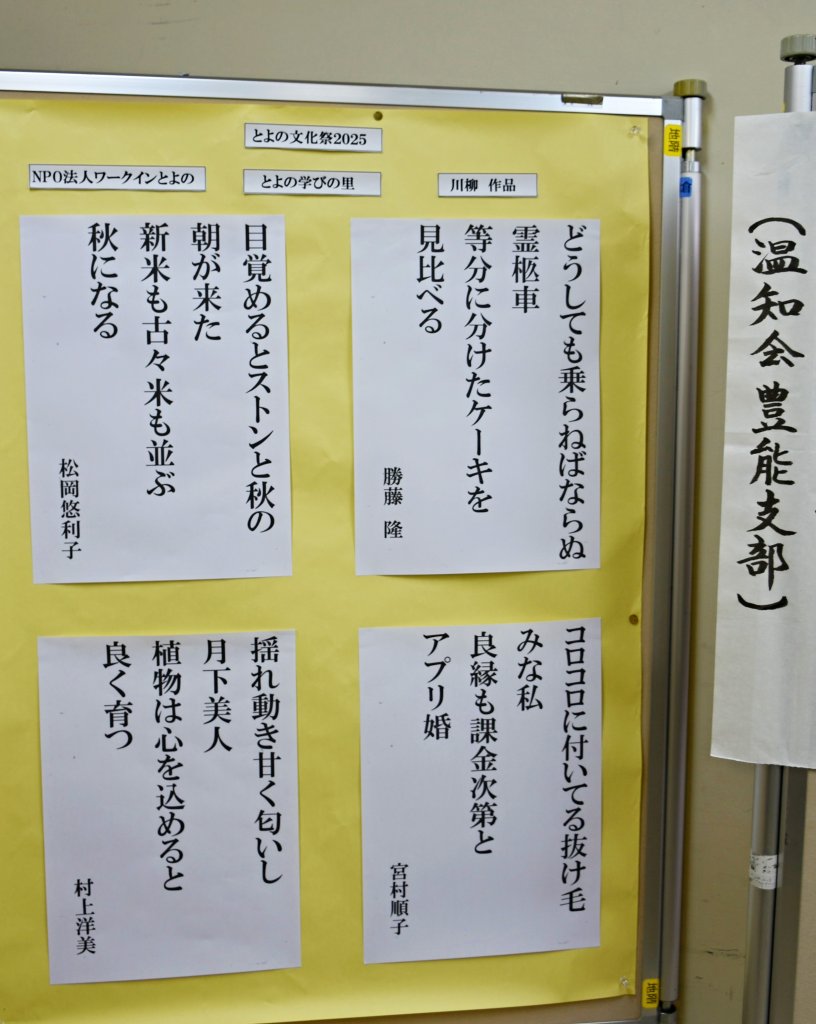 とよの文化祭2025
NPO法人ワークインとよの
とよの学びの里
川柳 作品
どうしても乗らねばならぬ
霊柩車
等分に分けたケーキを
見比べる
勝藤 隆
目覚めるとストンと秋の
朝が来た
新米も古々米も並ぶ
秋になる
松岡悠利子
コロコロに付いてる抜け毛
みな私
良縁も課金次第と
アプリ婚
宮村順子
揺れ動き甘く匂いし
月下美人
植物は心を込めると
良く育つ
村上洋美
(温知会豊能支部)
地階
倉
地階